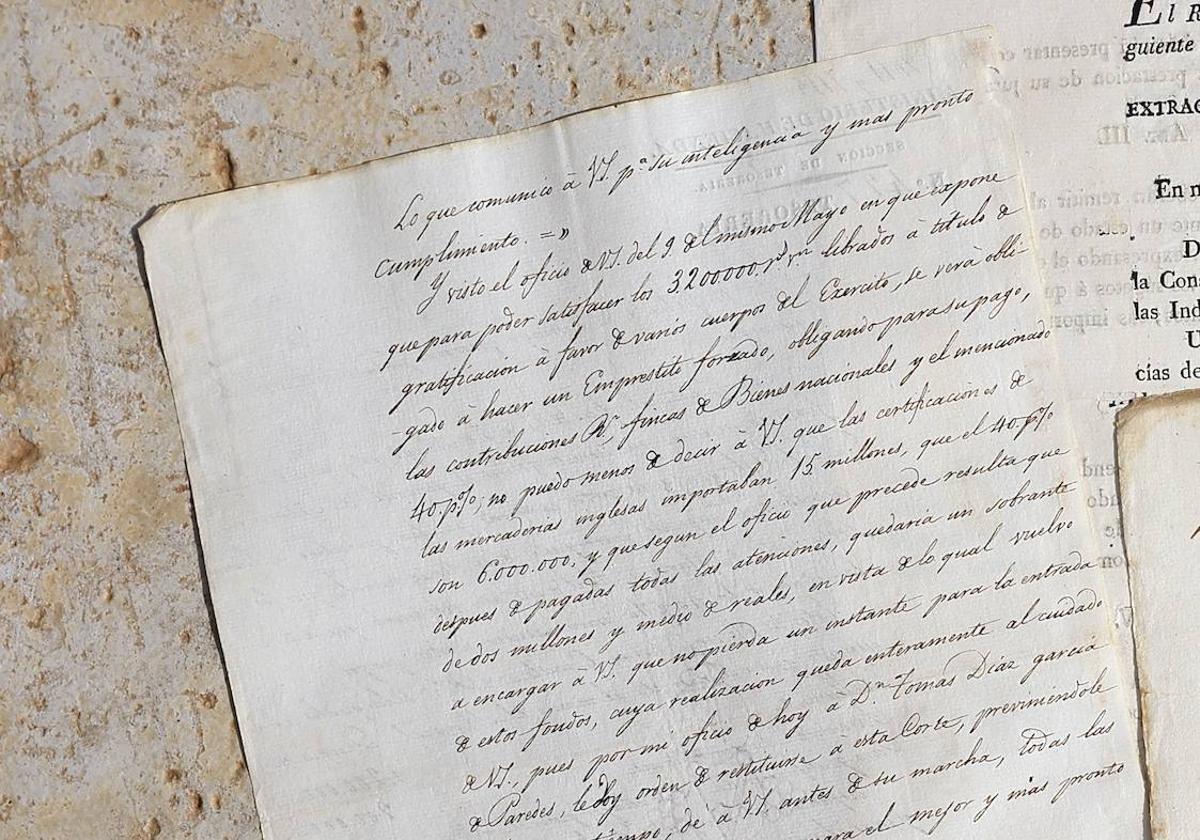 Lo que comunico à VS. pª su inteligencia y mas pronto
cumplimiento. = »
Y visto el oficio de VS. del 9. del mismo Mayo en que expone
que para poder satisfacer los 3.200.000. rs. vn. librados à titulo de
gratificacion à favor de varios cuerpos del Exercito, se verà obli-
-gado à hacer un Emprestito forzado, obligando para su pago,
las contribuciones Rs., fincas de Bienes nacionales y el mencionado
40. p%; no puedo menos de decir à VS. que las certificaciones de
las mercaderias inglesas importaban 15 millones, que el 40. p%
son 6.000.000, y que segun el oficio que precede resulta que
despues de pagadas todas las atenciones, quedaria un sobrante
de dos millones y medio de reales, en vista de lo qual vuelvo
a encargar à VS. que no pierda un instante para la entrada
de estos fondos, cuya realizacion queda enteramente al cuidado
de VS., pues por mi oficio de hoy à Dn. Tomas Diaz garcia
de Paredes, le doy orden de restituirse à esta Corte, previniendole
dé à VS. antes de su marcha, todas las
para el mejor y mas pronto
El R
guiente
EXTRAC
En n
D
la Cons
las Ind
U
cias de
SECCION DE TESORERIA.
ART. III.